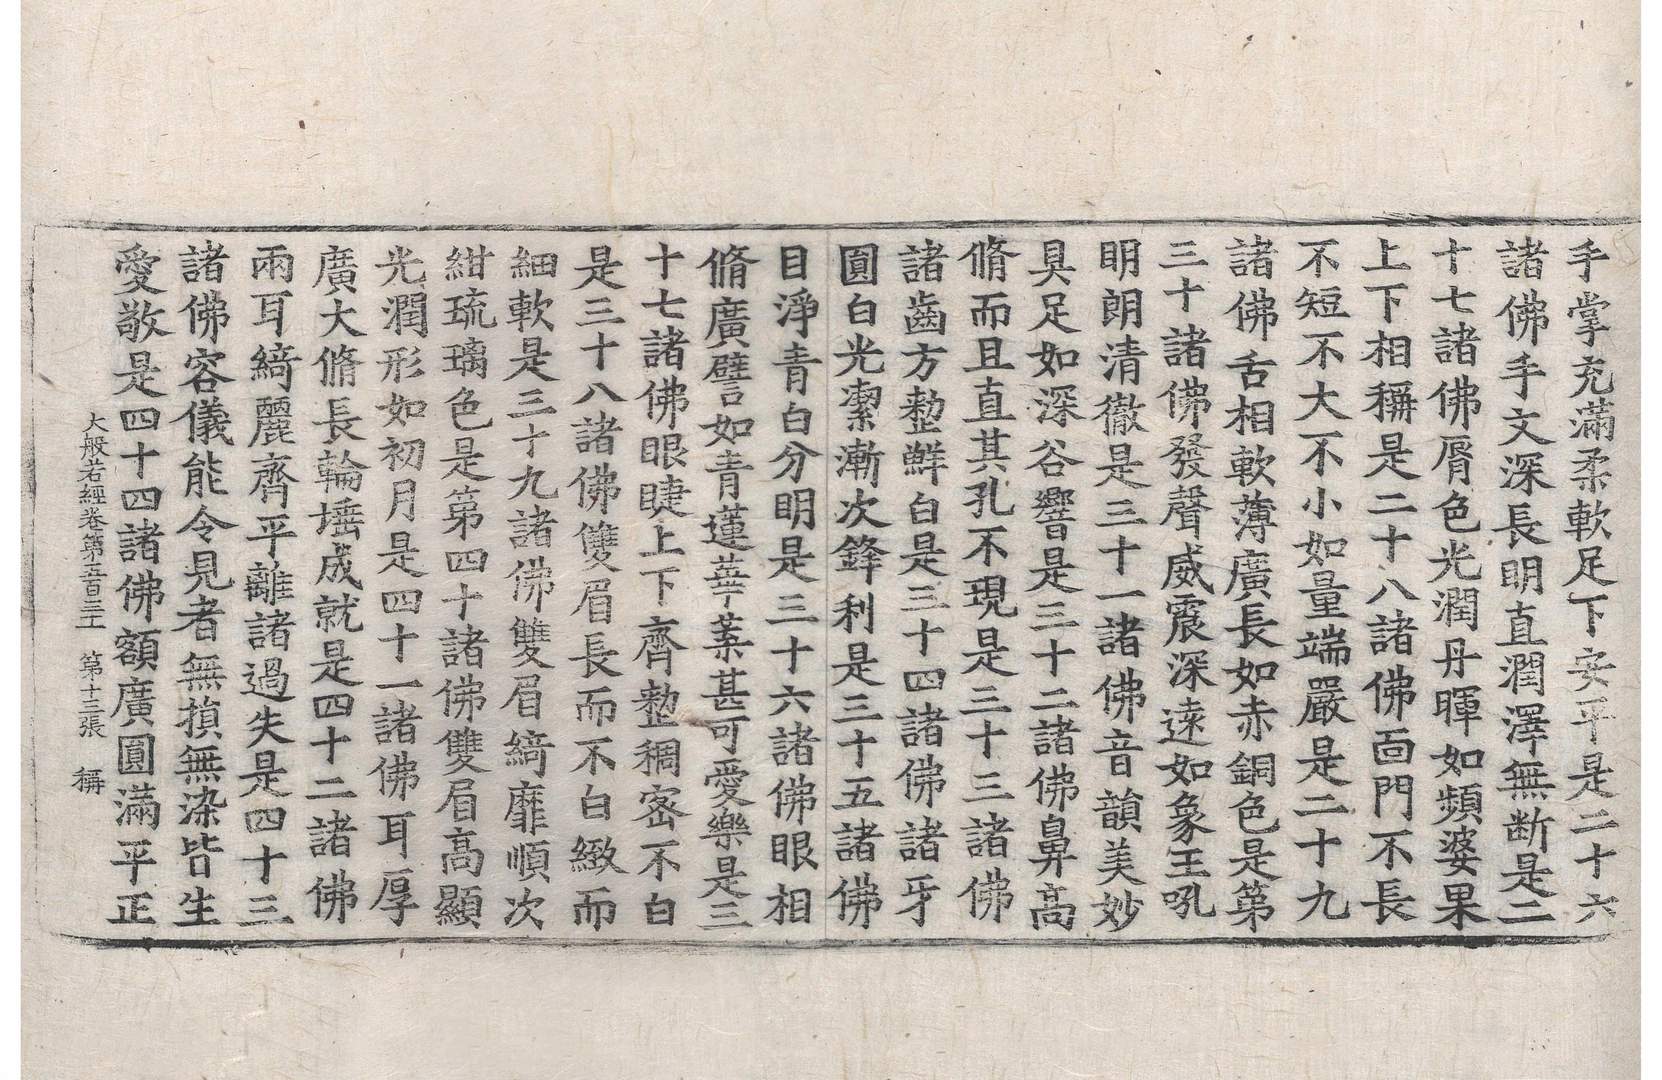 手掌充滿柔軟足下安平是二十六
諸佛手文深長明直潤澤無断是二
十七諸佛脣色光潤丹暉如頻婆果
上下相稱是二十八諸佛面門不長
不短不大不小如量端嚴是二十九
諸佛舌相軟薄廣長如赤銅色是第
三十諸佛發聲威震深遠如象王吼
明朗清徹是三十一諸佛音韻美妙
具足如深谷響是三十二諸佛鼻高
脩而且直其孔不現是三十三諸佛
諸齒方整鮮白是三十四諸佛諸牙
圓白光潔漸次鋒利是三十五諸佛
目淨青白分明是三十六諸佛眼相
脩廣譬如青蓮華葉甚可愛樂是三
十七諸佛眼睫上下齊整稠密不白
是三十八諸佛雙眉長而不白緻而
細軟是三十九諸佛雙眉綺靡順次
紺琉璃色是第四十諸佛雙眉高顯
光潤形如初月是四十一諸佛耳厚
廣大脩長輪埵成就是四十二諸佛
兩耳綺麗齊平離諸過失是四十三
諸佛容儀能令見者無損無染皆生
愛敬是四十四諸佛額廣圓滿平正
大般若經卷第五百三十一　第十三張　稱